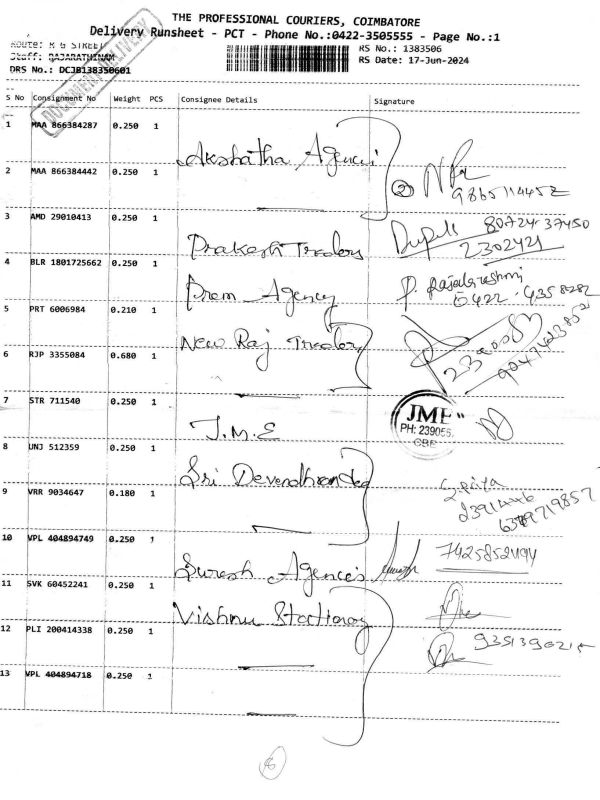 THE PROFESSIONAL COURIERS, COIMBATORE
Delivery Runsheet - PCT - Phone No.:0422-3505555 - Page No.:1
Route: R G STREET RS No.: 1383506
Staff: RAJARATHINAM RS Date: 17-Jun-2024
DRS No.: DCJB138350601
DOCUMENT DELIVERY
S No Consignment No Weight PCS Consignee Details Signature
1 MAA 866384287 0.250 1 Akshatha Agenci
2 MAA 866384442 0.250 1 2 9865114452
3 AMD 29010413 0.250 1 Prakesh Traders 80724 37450
2302421
4 BLR 1801725662 0.250 1 Prem Agency P. Rajalakshmi
0422 - 4358282
5 PRT 6006984 0.210 1 New Raj Traders
6 RJP 3355084 0.680 1
7 STR 711540 0.250 1 J.M.E JME
PH: 239055
CBE
8 UNJ 512359 0.250 1 Sri Devendhran
9 VRR 9034647 0.180 1 S. Priya
2391446
6379719857
10 VPL 404894749 0.250 1 Suresh Agencies
11 SVK 60452241 0.250 1 Vishnu Stationary
12 PLI 200414338 0.250 1
13 VPL 404894718 0.250 1